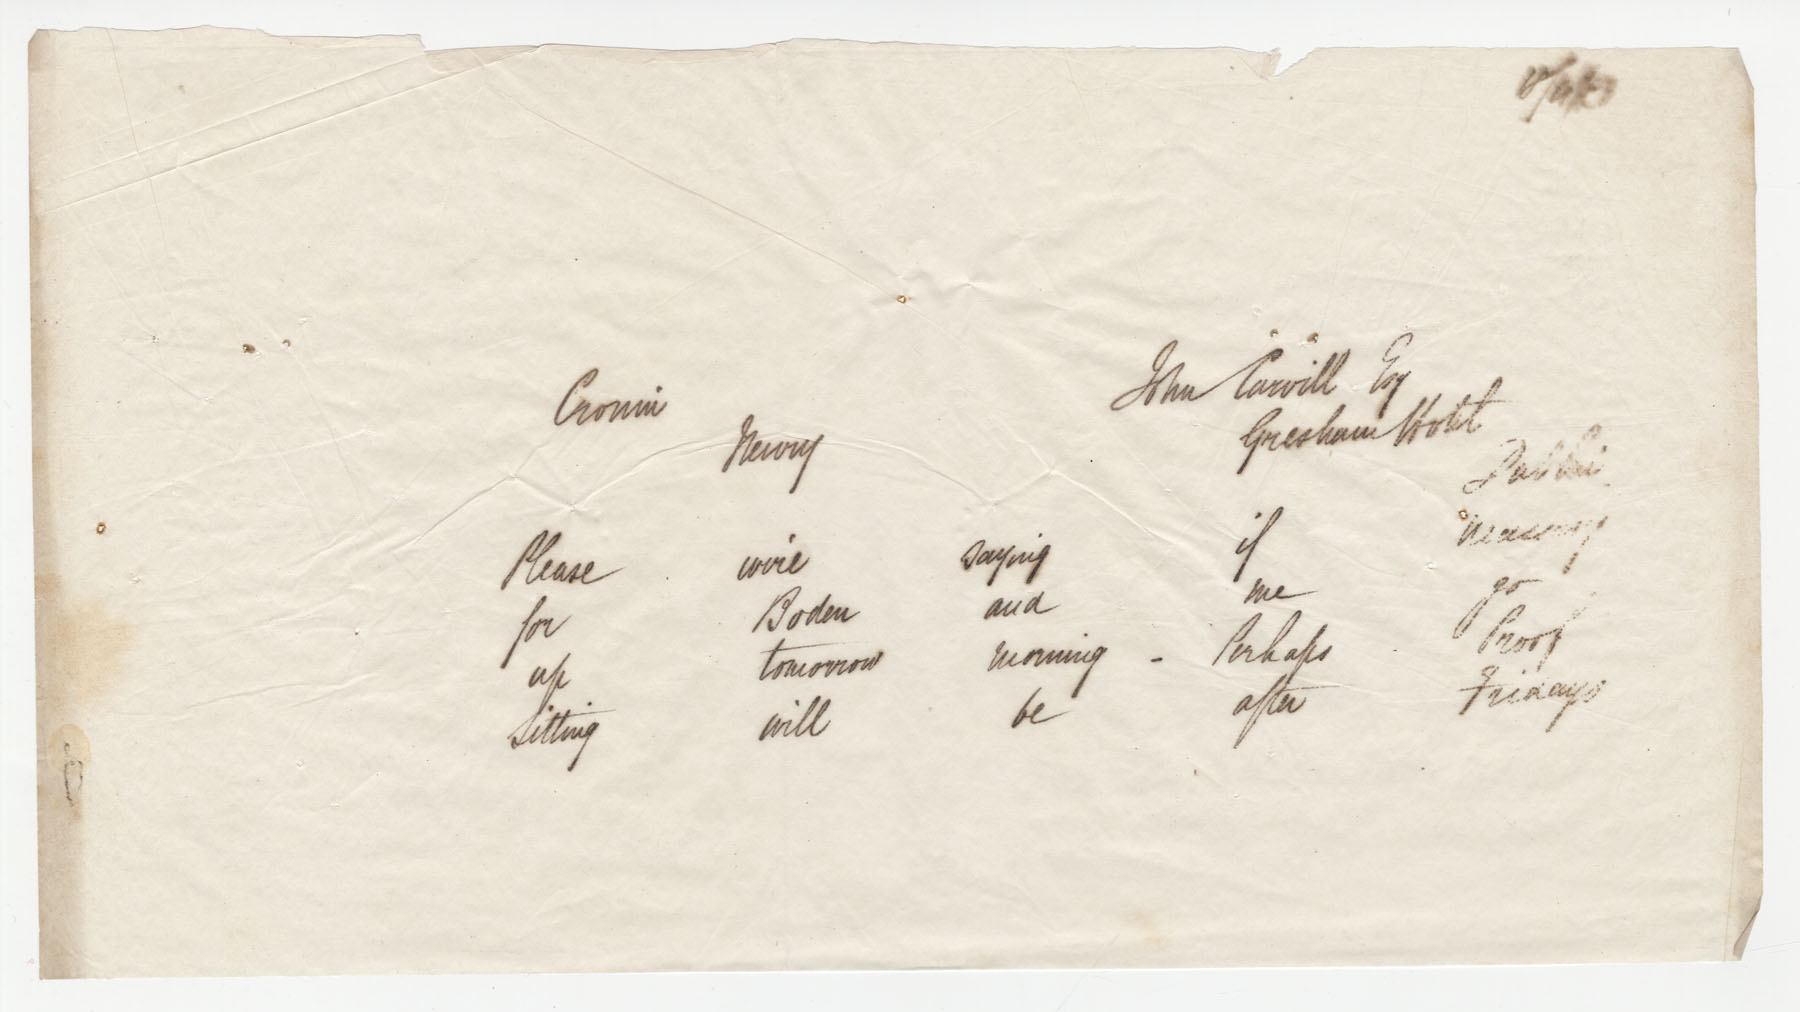 Cronin
Newry
John Carvill Esq
Gresham Hotel
Dublin
Please wire saying if necessary
for Boden and me go
up tomorrow morning - Perhaps Proof
sitting will be after Fridays